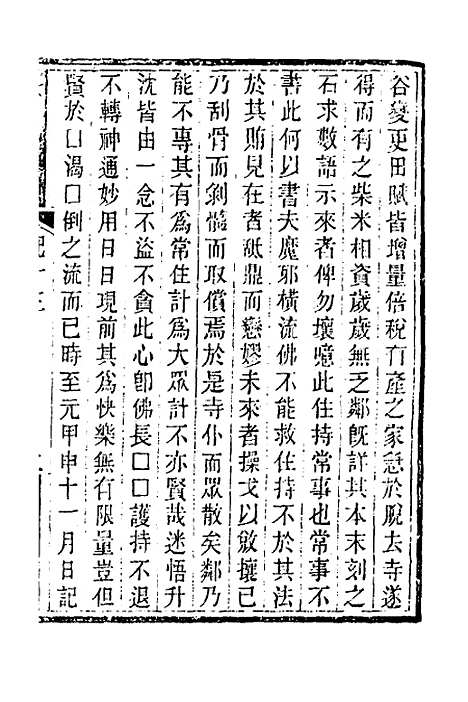 谷變更田賦皆增量倍稅有產之家急於脫去寺遂
得而有之柴米相資歲歲無乏鄰旣詳其本末刻之
石求數語示來者俾勿壞噫此住持常事也常事不
書此何以書夫魔邪橫流佛不能救住持不於其法
於其賄見在者舐鼎而戀嫪未來者操戈以敓攘已
乃刮骨而剝髓而取償焉於是寺仆而眾散矣鄰乃
能不專其有爲常住計爲大眾計不亦賢哉迷悟升
沈皆由一念不盜不貪此心卽佛長口口護持不退
不轉神通妙用日日現前其爲快樂無有限量豈但
賢於口渴口倒之流而已時至元甲申十一月日記